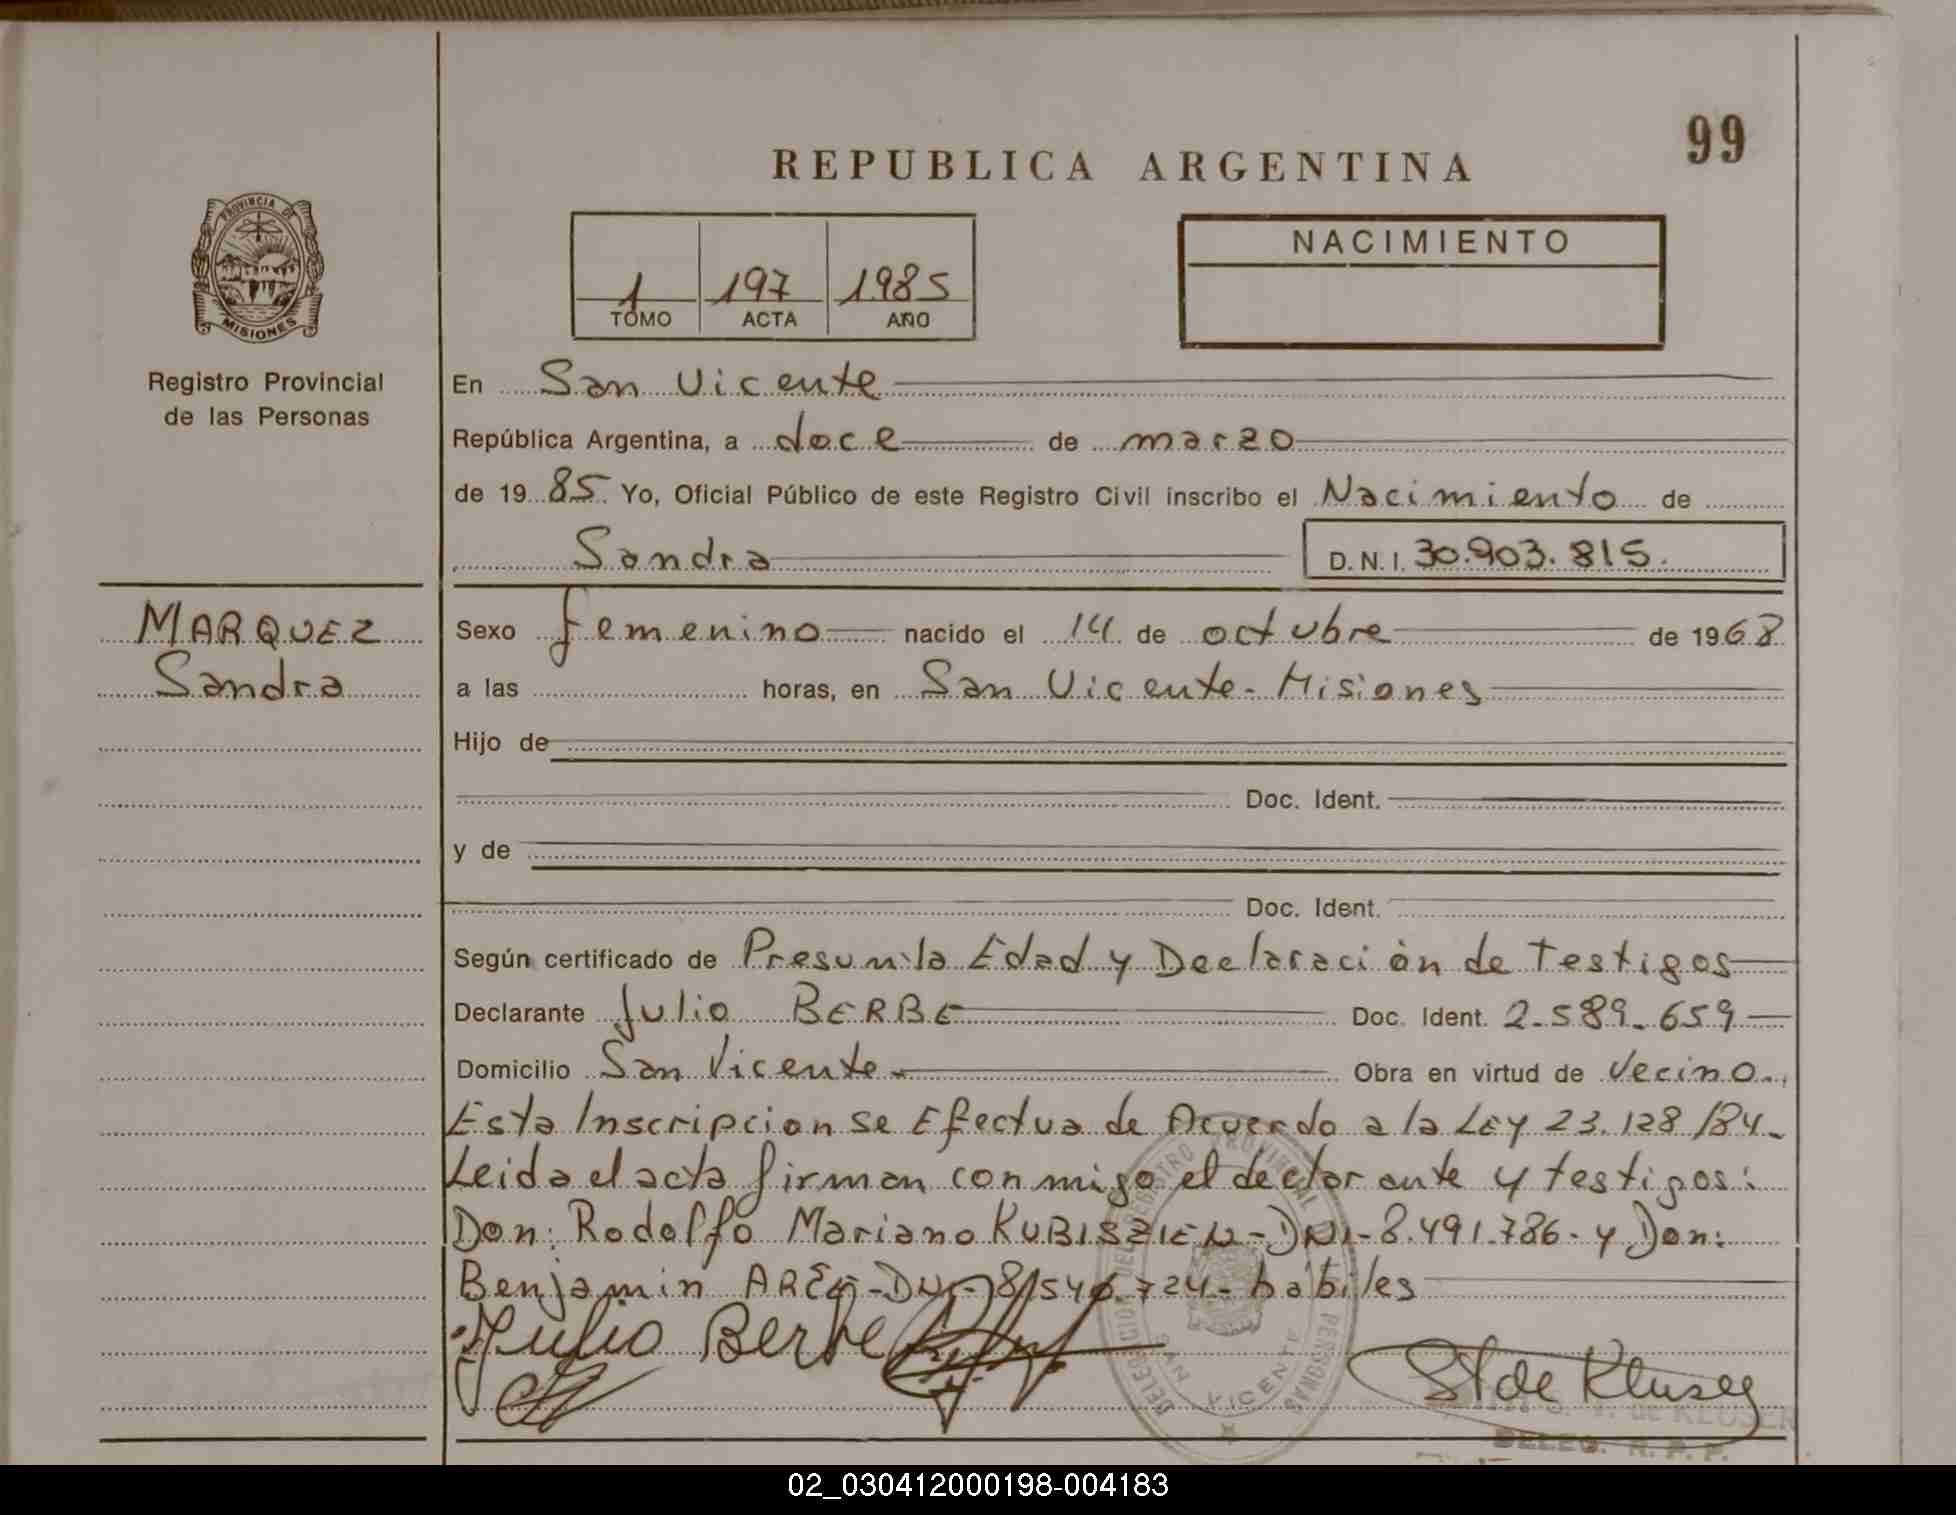 99
REPUBLICA ARGENTINA
PROVINCIA DE
MISIONES
Registro Provincial
de las Personas
1 197 1985
TOMO ACTA AÑO
NACIMIENTO
En San Vicente
República Argentina, a doce de marzo
de 1985. Yo, Oficial Público de este Registro Civil inscribo el Nacimiento de
Sandra D.N.I. 30.903.815.
MARQUEZ
Sandra
Sexo femenino nacido el 14 de octubre de 1968
a las horas, en San Vicente - Misiones
Hijo de
Doc. Ident.
y de
Doc. Ident.
Según certificado de Presunta Edad y Declaración de Testigos
Declarante Julio BERBE Doc. Ident. 2.589.659
Domicilio San Vicente Obra en virtud de Vecino.
Esta Inscripcion se Efectua de Acuerdo a la LEY 23.128/84.
Leida el acta firman conmigo el declarante y testigos:
Don: Rodolfo Mariano KUBISZIEN - DNI - 8.491.786 - y Don:
Benjamin - 724 - hábiles
Julio Berbe
St de Kluser
DELEGACION DEL REGISTRO PROVINCIAL DE PERSONAS
SAN VICENTE
de KLUSER
DELEG. R. P. P.
02_030412000198-004183